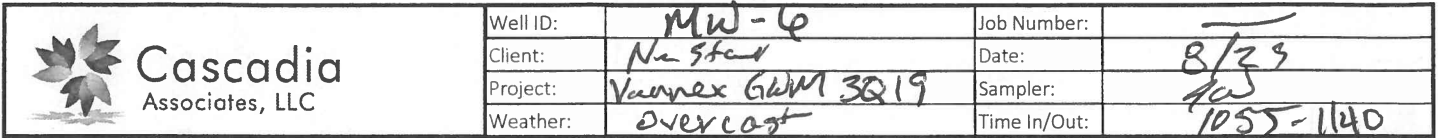 Cascadia
Associates, LLC
Well ID: MW-6 Job Number: —
Client: NuStar Date: 8/23
Project: GWM 3Q19 Sampler:
Weather: Overcast Time In/Out: 1055-1140